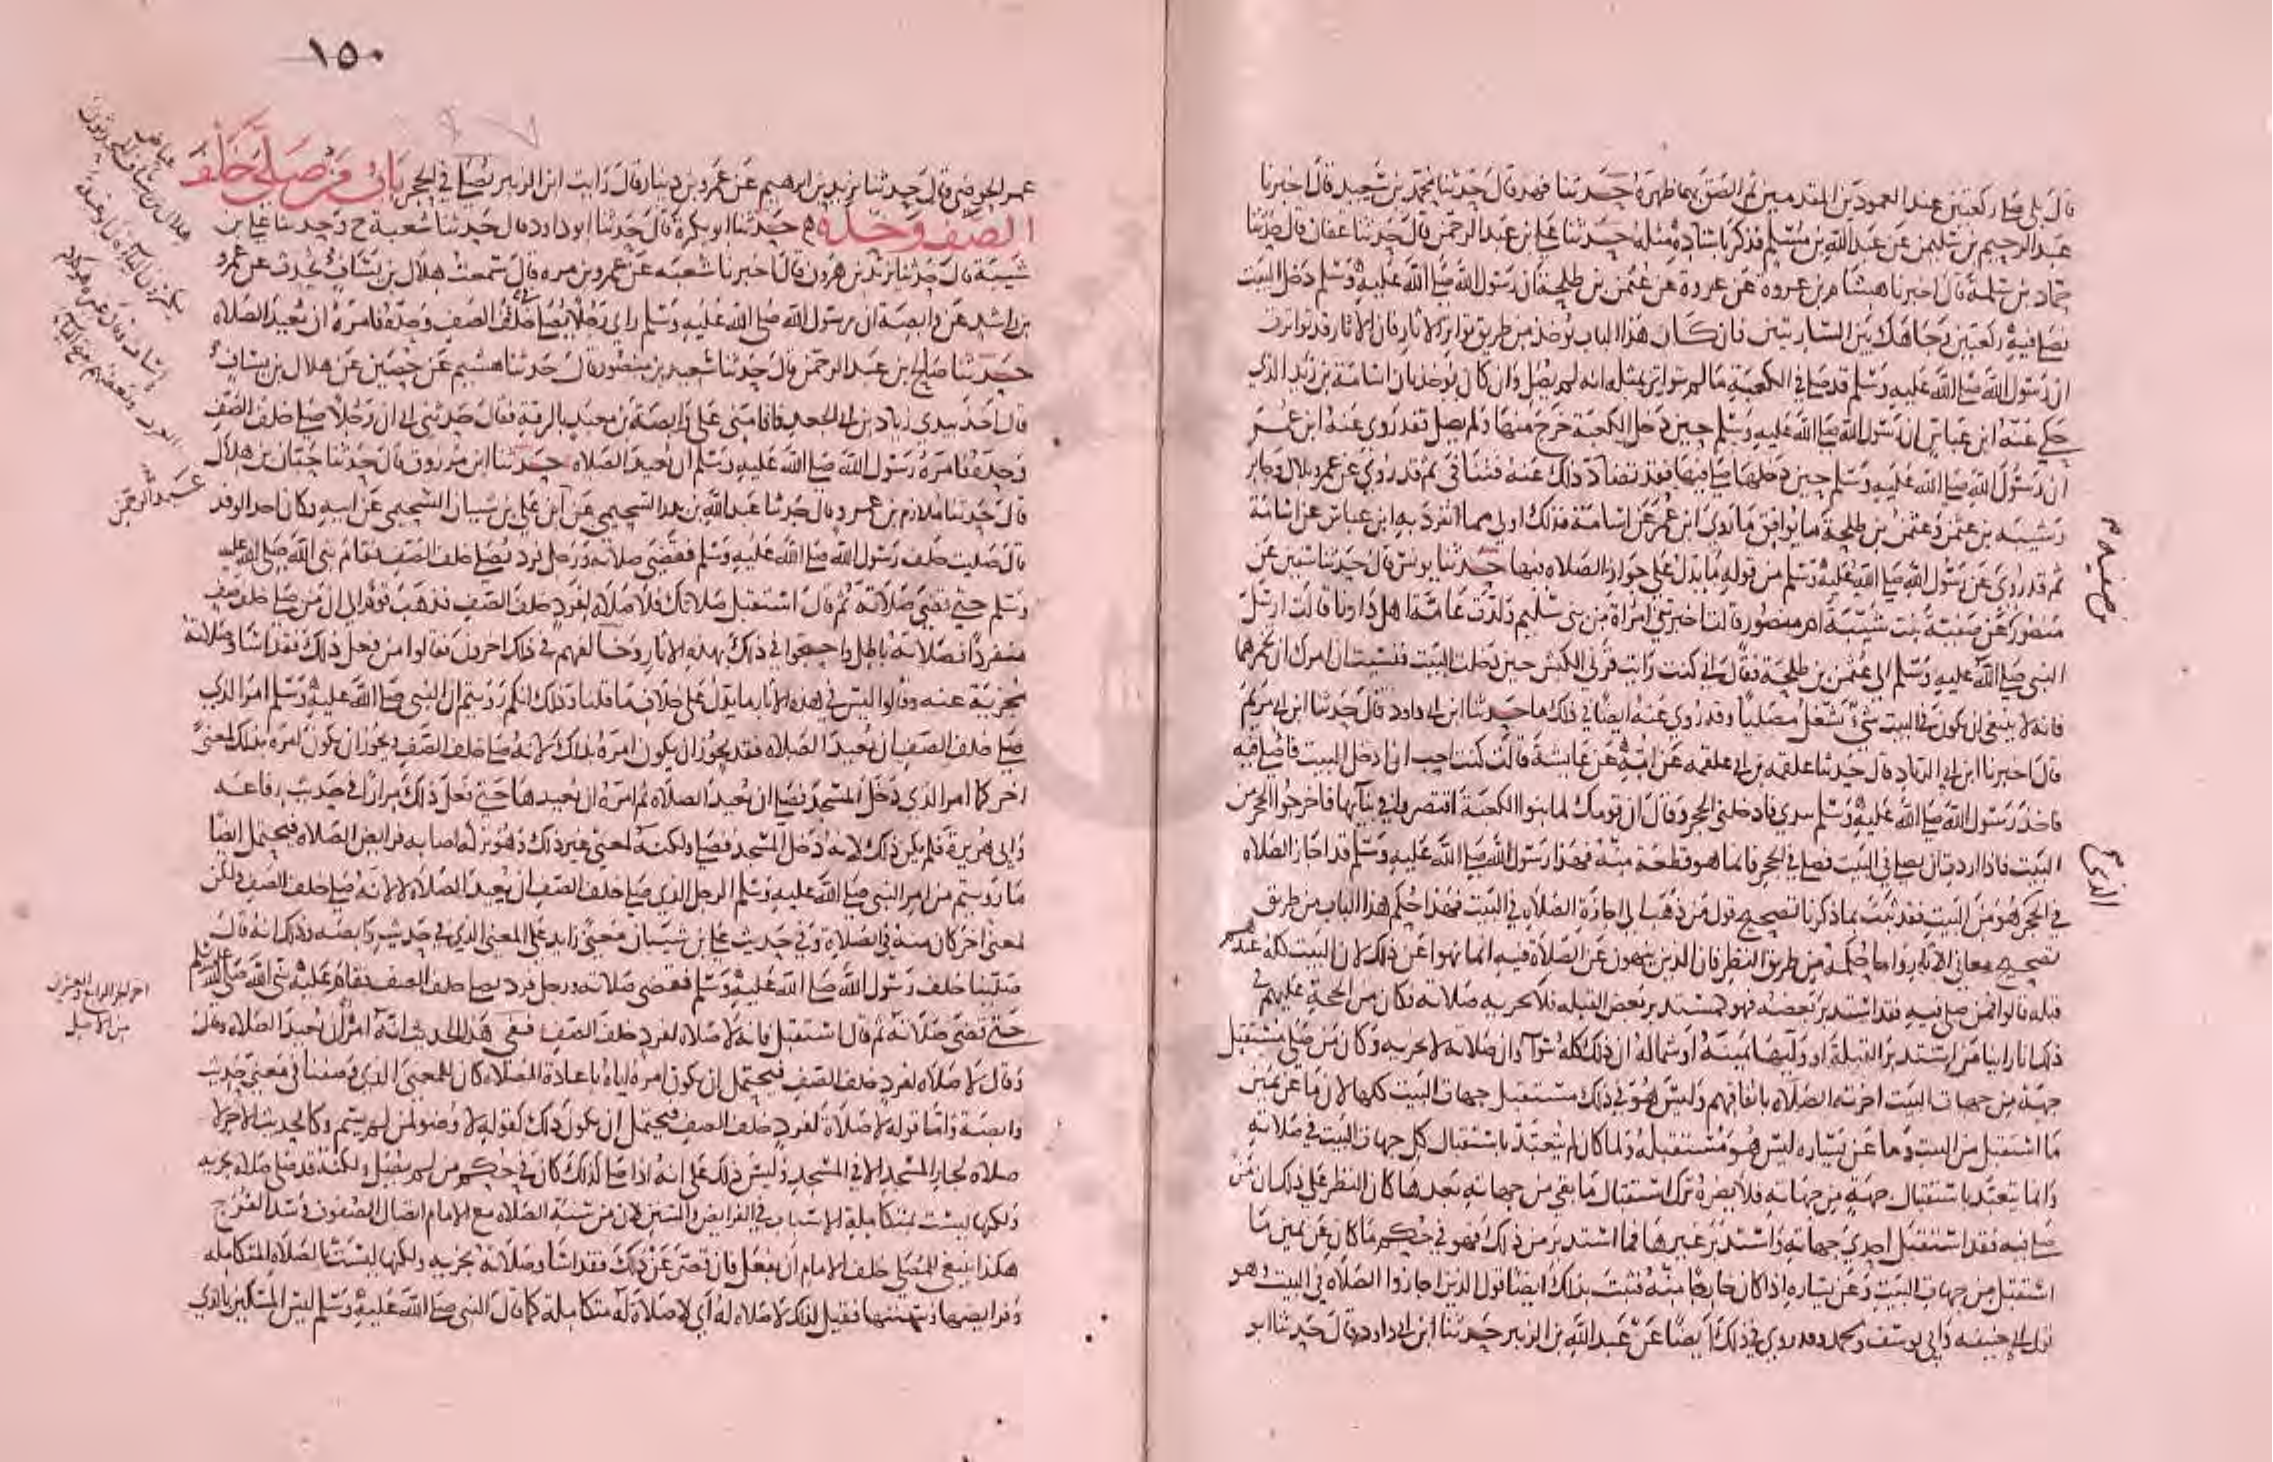 قال بلى صلى ركعتين عند العمودين المقدمين ثم الصق بهما ظهره حدثنا فهد قال حدثنا محمد بن سعيد قال اخبرنا
عبد الرحيم بن سليمن عن عبد الله بن مسلم فذكر باسناده مثله حدثنا علي بن عبد الرحمن قال حدثنا عفان قال حدثنا
حماد بن سلمة قال اخبرنا هشام بن عروة عن عروة عن عثمن بن طلحة ان رسول الله صلى الله عليه وسلم دخل البيت
فصلى فيه ركعتين وجاهك بين الساريتين فان كان هذا الباب يوخذ من طريق تواتر الاثار فان الاثار قد تواترت
ان رسول الله صلى الله عليه وسلم قد صلى في الكعبة ما لم تتواتر بمثله انه لم يصل وان كان يوخذ بان اسامة بن زيد الذي
حكى عنه ابن عباس ان رسول الله صلى الله عليه وسلم حين دخل الكعبة خرج منها ولم يصل فقد روى عنه ابن عمر
ان رسول الله صلى الله عليه وسلم حين دخلها صلى فيها فقد تضاد ذلك عنه فتنافى ثم قد روي عن عمر وبلال وجابر
وشيبة بن عثمن وعثمن بن طلحة ما يوافق ما روى ابن عمر عن اسامة فذلك اولى مما انفرد به ابن عباس عن اسامة
ثم قد روي عن رسول الله صلى الله عليه وسلم من قوله ما يدل على جواز الصلاة فيها حدثنا يونس قال حدثنا سفين عن
منصور عن صفية بنت شيبة ام منصور قالت اخبرتني امراة من بني سليم ولدت عامة اهل دارنا قالت ارسل
النبي صلى الله عليه وسلم الى عثمن بن طلحة فقال اني كنت رايت قرني الكبش حين دخلت البيت فنسيت ان امرك ان تخمرهما
فانه لا ينبغي ان يكون في البيت شيء يشغل مصليا وقد روي عنه ايضا في ذلك ما حدثنا ابن ابي داود قال حدثنا ابن ابي مريم
قال اخبرنا ابن ابي الزناد قال حدثنا علقمه بن ابي علقمه عن امه عن عايشة قالت كنت احب ان ادخل البيت فاصلي فيه
فاخذ رسول الله صلى الله عليه وسلم بيدي فادخلني الحجر وقال ان قومك لما بنوا الكعبة اقتصروا في بنائها فاخرجوا الحجر من
البيت فاذا اردت ان تصلي في البيت فصلي في الحجر فانما هو قطعة منه فهذا رسول الله صلى الله عليه وسلم قد اجاز الصلاة
في الحجر هو من البيت فقد ثبت بما ذكرنا تصحيح قول من ذهب الى اجازة الصلاة في البيت فهذا حكم هذا الباب من طريق
تصحيح معاني الاثار واما حكمه من طريق النظر فان الذين ينهون عن الصلاة فيه انما نهوا عن ذلك لان البيت كله عندهم
قبله قالوا فمن صلى فيه فقد استدبر بعضه فهو كمستدبر بعض القبله فلا تجزيه صلاته فكان من الحجة عليهم في
ذلك انا راينا من استدبر القبلة او وليها يمينه او شماله ان ذلك كله سواء وان صلاته لا تجزيه وكان من صلى مستقبل
جهة من جهات البيت اجزته الصلاة باتفاقهم وليس هو في ذلك مستقبل جهات البيت كلها لان ما عن يمين
ما استقبل من البيت وما عن يساره ليس هو مستقبله ولما كان لم يتعبد باستقبال كل جهات البيت في صلاته
وانما يتعبد باستقبال جهة من جهاته فلا يضره ترك استقبال ما بقي من جهاته بعدها كان النظر على ذلك ان من
صلى فيه فقد استقبل احدى جهاته واستدبر غيرها فما استدبر من ذلك فهو في حكم ما كان عن يمين ما
استقبل من جهات البيت وعن يساره اذا كان خارجا منه فثبت بذلك ايضا قول الذين اجازوا الصلاة في البيت وهو
قول ابي حنيفه وابي يوسف ومحمد وقد روي في ذلك ايضا عن عبد الله بن الزبير حدثنا ابن ابي داود قال حدثنا ابو
صفية
الذي
١٥٠
عمر الحوضي قال حدثنا يزيد بن ابرهيم عن عمرو بن دينار قال رايت ابن الزبير يصلي في الحجر باب من صلى خلف
الصف وحده حدثنا ابو بكرة قال حدثنا ابو داود قال حدثنا شعبة ح وحدثنا علي بن
شيبة قال حدثنا يزيد بن هرون قال اخبرنا شعبه عن عمرو بن مره قال سمعت هلال بن يساف يحدث عن عمرو
بن راشد عن وابصة ان رسول الله صلى الله عليه وسلم راى رجلا يصلي خلف الصف وحده فامره ان يعيد الصلاه
حدثنا صالح بن عبد الرحمن قال حدثنا سعيد بن منصور قال حدثنا هشيم عن حصين عن هلال بن يساف
قال اخذ بيدي زياد بن ابي الجعد فاقامني على وابصة بن معبد بالرقة فقال حدثني ابي ان رجلا صلى خلف الصف
وحده فامره رسول الله صلى الله عليه وسلم ان يعيد الصلاه حدثنا ابن مرزوق قال حدثنا حبان بن هلال
قال حدثنا ملازم بن عمرو قال حدثنا عبد الله بن بدر السحيمي عن ابن علي بن شيبان السحيمي عن ابيه وكان احد الوفد
قال صليت خلف رسول الله صلى الله عليه وسلم فقضى صلاته ورجل فرد يصلي خلف الصف فقام نبي الله صلى الله عليه
وسلم حتى قضى صلاته ثم قال استقبل صلاتك فلا صلاة لفرد خلف الصف فذهب قوم الى ان من صلى خلف صف
منفردا فصلاته باطل واحتجوا في ذلك بهذه الاثار وخالفهم في ذلك اخرون فقالوا من فعل ذلك فقد اساء وصلاته
مجزية عنه وقالوا ليس في هذه الاثار ما يدل على خلاف ما قلنا وذلك انكم رويتم ان النبي صلى الله عليه وسلم امر الذي
صلى خلف الصف ان يعيد الصلاه فقد يجوز ان يكون امره بذلك لانه صلى خلف الصف ويجوز ان يكون امره بذلك لمعنى
اخر كما امر الذي دخل المسجد فصلى ان يعيد الصلاه ثم امره ان يعيدها حتى فعل ذلك مرارا في حديث رفاعه
وابي هريرة فلم يكن ذلك لانه دخل المسجد فصلى ولكنه لمعنى غير ذلك وهو تركه اصابه فرايض الصلاه فيحتمل ايضا
ما رويتم من امر النبي صلى الله عليه وسلم الرجل الذي صلى خلف الصف ان يعيد الصلاه لا لانه صلى خلف الصف ولكن
لمعنى اخر كان منه في الصلاة وفي حديث علي بن شيبان معنى زايد على المعنى الذي في حديث وابصه وذلك انه قال
صلينا خلف رسول الله صلى الله عليه وسلم فقضى صلاته ورجل فرد يصلي خلف الصف فقام عليه نبي الله صلى الله عليه وسلم
حتى قضى صلاته ثم قال استقبل فانه لا صلاه لفرد خلف الصف ففي هذا الحديث انه امره ان يعيد الصلاه وقال
وقال لا صلاه لفرد خلف الصف فيحتمل ان يكون امره اياه باعادة الصلاه كان للمعنى الذي وصفنا في معنى حديث
وابصة واما قوله لا صلاة لفرد خلف الصف فيحتمل ان يكون ذلك كقوله لا وضو لمن لم يسم وكالحديث الاخر لا
صلاه لجار المسجد الا في المسجد وليس ذلك على انه اذا صلى كذلك كان في حكم من لم يصل ولكنه قد صلى صلاة تجزيه
ولكنها ليست بمتكاملة الاسباب في الفرايض والسنن لان من سنة الصلاه مع الامام اتصال الصفوف وسد الفرج
هكذا ينبغي للمصلي خلف الامام ان يفعل فان قصر عن ذلك فقد اسا وصلاته تجزيه ولكنها ليست بالصلاه المتكامله
في فرايضها وسننها فقيل لذلك لا صلاه له اي لا صلاة له متكاملة كما قال النبي صلى الله عليه وسلم ليس المسكين بالذي
عياض
هلال بن يساف المحدثون
يكسرون الياء
اخر الجز الرابع والعشرين
من الاصل